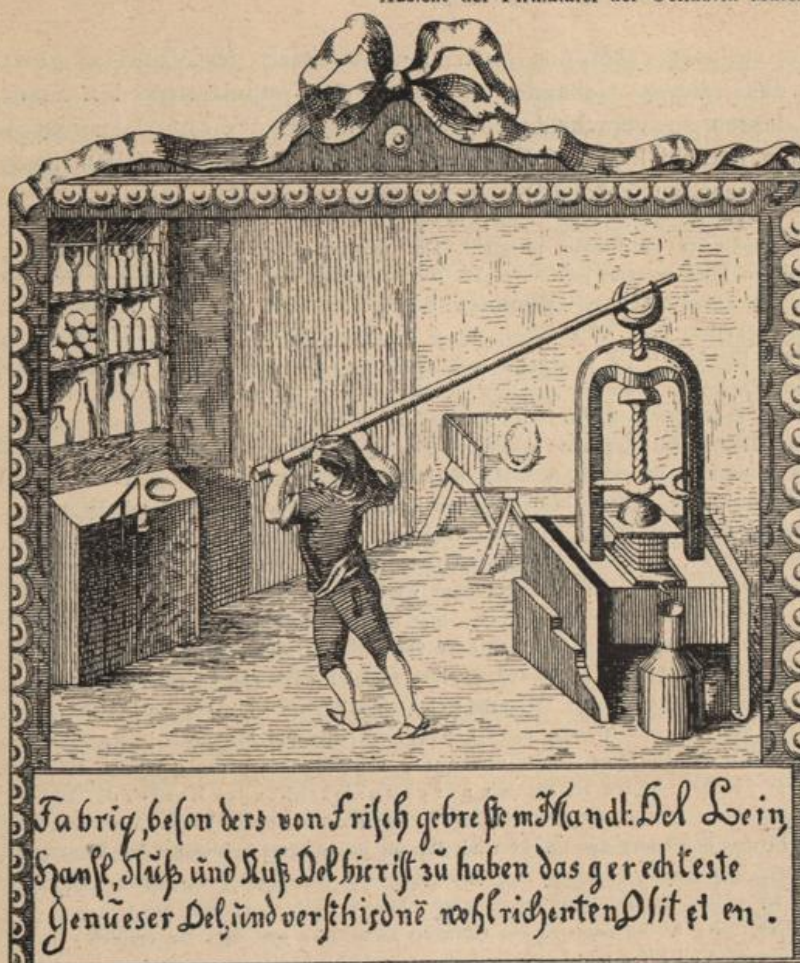 Fabriq, beson ders von frisch gebreste m Mandl: Oel Lein,
Hanfl, Nuß und Ruß Oel hier ist zu haben das gerechteste
Genueser Oel, und verschidnē wohlrichenten Olit et en .